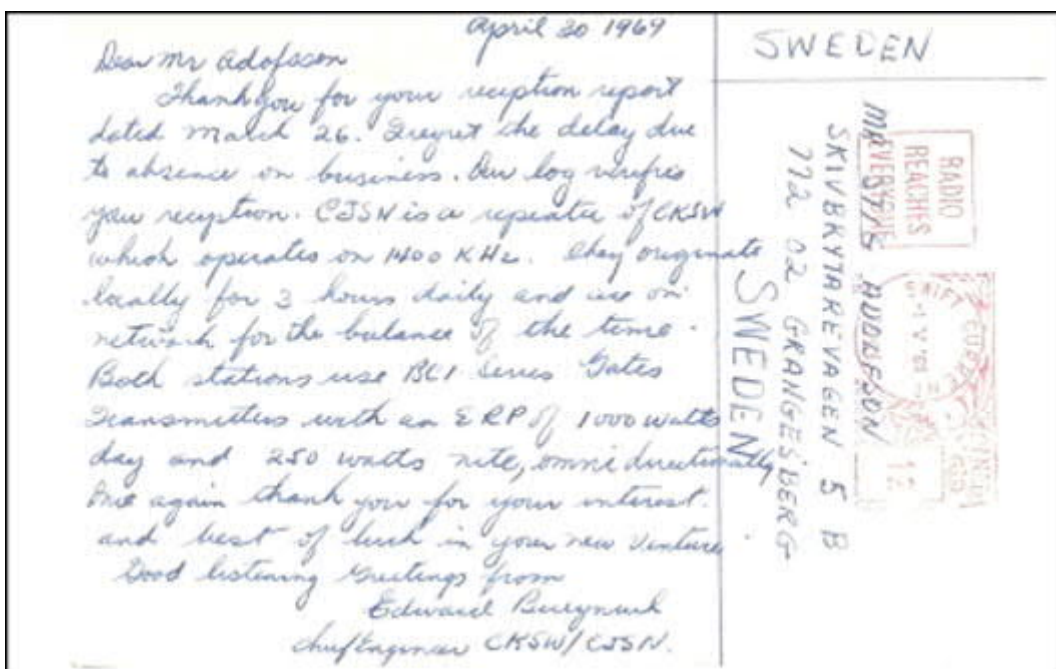 April 30 1969
Dear Mr Adofsson
Thank you for your reception report
dated March 26. I regret the delay due
to absence on business. Our log verifies
you reception. CJSN is a repeater of CKSW
which operates on 1400 KHz. They originate
locally for 3 hours daily and are on
network for the balance of the time.
Both stations use BC1 Series Gates
Transmitters with an ERP of 1000 watts
day and 250 watts nite, omni directionally
Once again thank you for your interest.
and best of luck in your new Venture
Good listening Greetings from
Edward
Chief Engineer CKSW/CJSN.
SWEDEN
RADIO
REACHES
EVERYONE
SWIFT CURRENT
MR
SKIVBRYTAREVAGEN 5 B
772 02 GRANGESBERG
SWEDEN